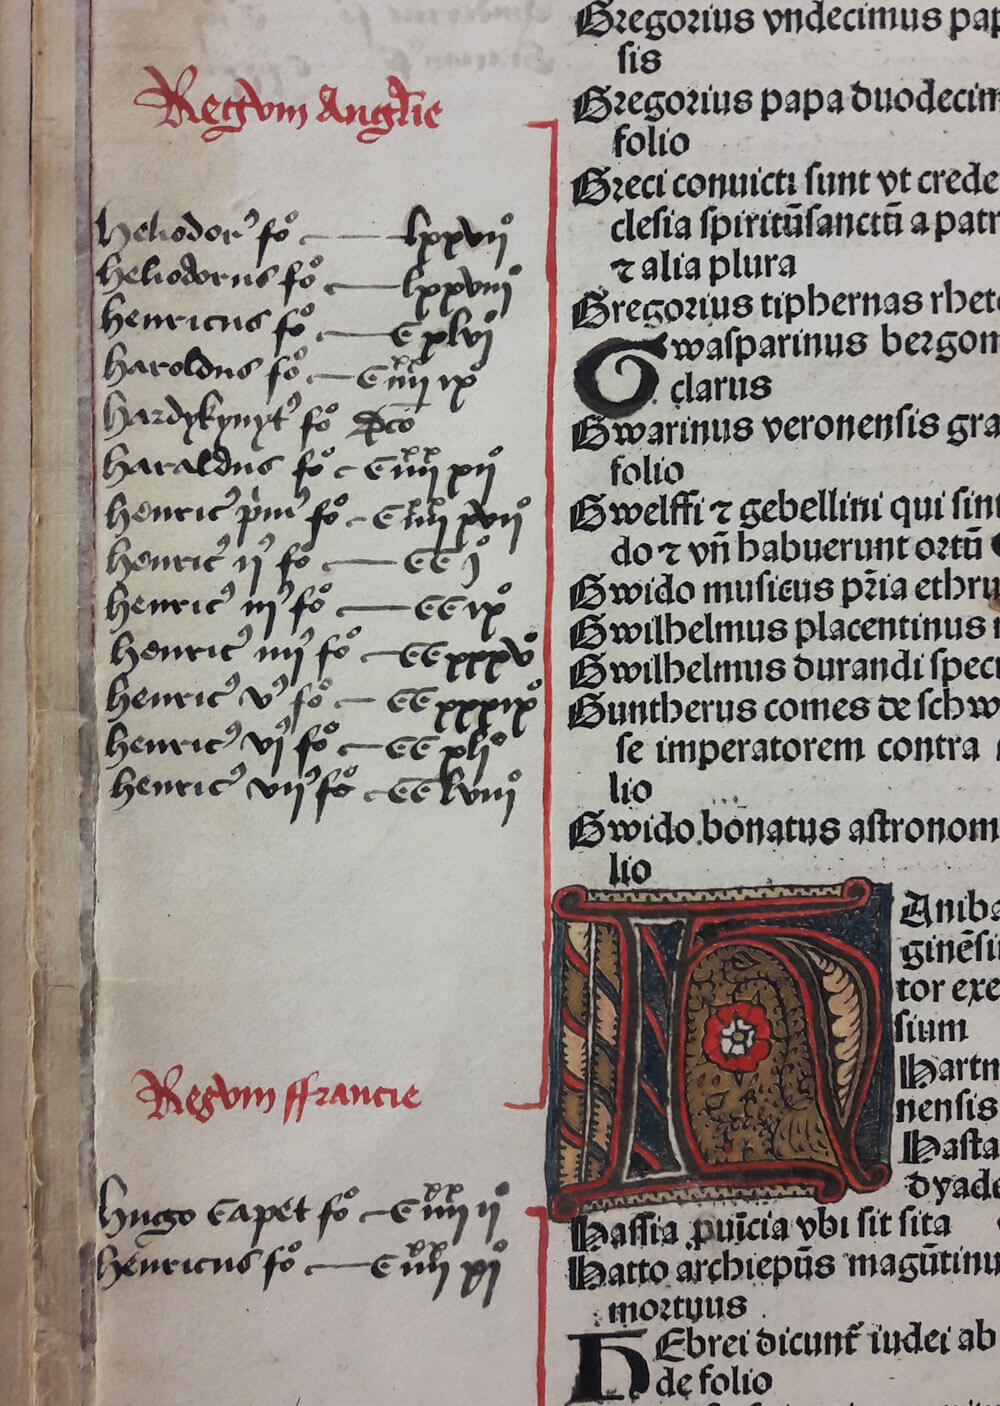 Regum Anglie
heliodor⁹ fo° lxxvii°
heliodorus fo° lxxviii°
henricus fo° C xlvi°
haroldus fo° C iiii^xx ix°
hardykynyt⁹ fo°
haraldus fo° C iiii^xx xii°
henric⁹ prim⁹ fo° C iiii^xx xvii°
henric⁹ ii⁹ fo° CC i°
henric⁹ iii⁹ fo° CC ix°
henric⁹ iiii⁹ fo° CC xxxv°
henric⁹ v⁹ fo° CC xxxix°
henric⁹ vi⁹ fo° CC xli°
henric⁹ vii⁹ fo° CC lviii°
Regum ffrancie
hugo Capet fo° C iiii^xx ii°
henricus fo° C iiii^xx xi°
Gregorius vndecimus pap
sis
Gregorius papa duodecim
folio
Greci conuicti sunt vt crede
clesia spiritūsanctū a patr
⁊ alia plura
Gregorius tiphernas rheto
Gwasparinus bergom
clarus
Gwarinus veronensis gra
folio
Gwelffi ⁊ gebellini qui sint
do ⁊ vñ habuerunt ortū
Gwido musicus pr̄ia ethru
Gwilhelmus placentinus
Gwilhelmus durandi specu
Guntherus comes de schw
se imperatorem contra
lio
Gwido bonatus astronom
lio
HAniba
ginēsi
tor exe
sium
Hartm
nensis
Hasta
dyade
Hassia puīcia vbi sit sita
Hatto archiepūs magūtinu
mortuus
HEbrei dicunt̄ iudei ab
de folio